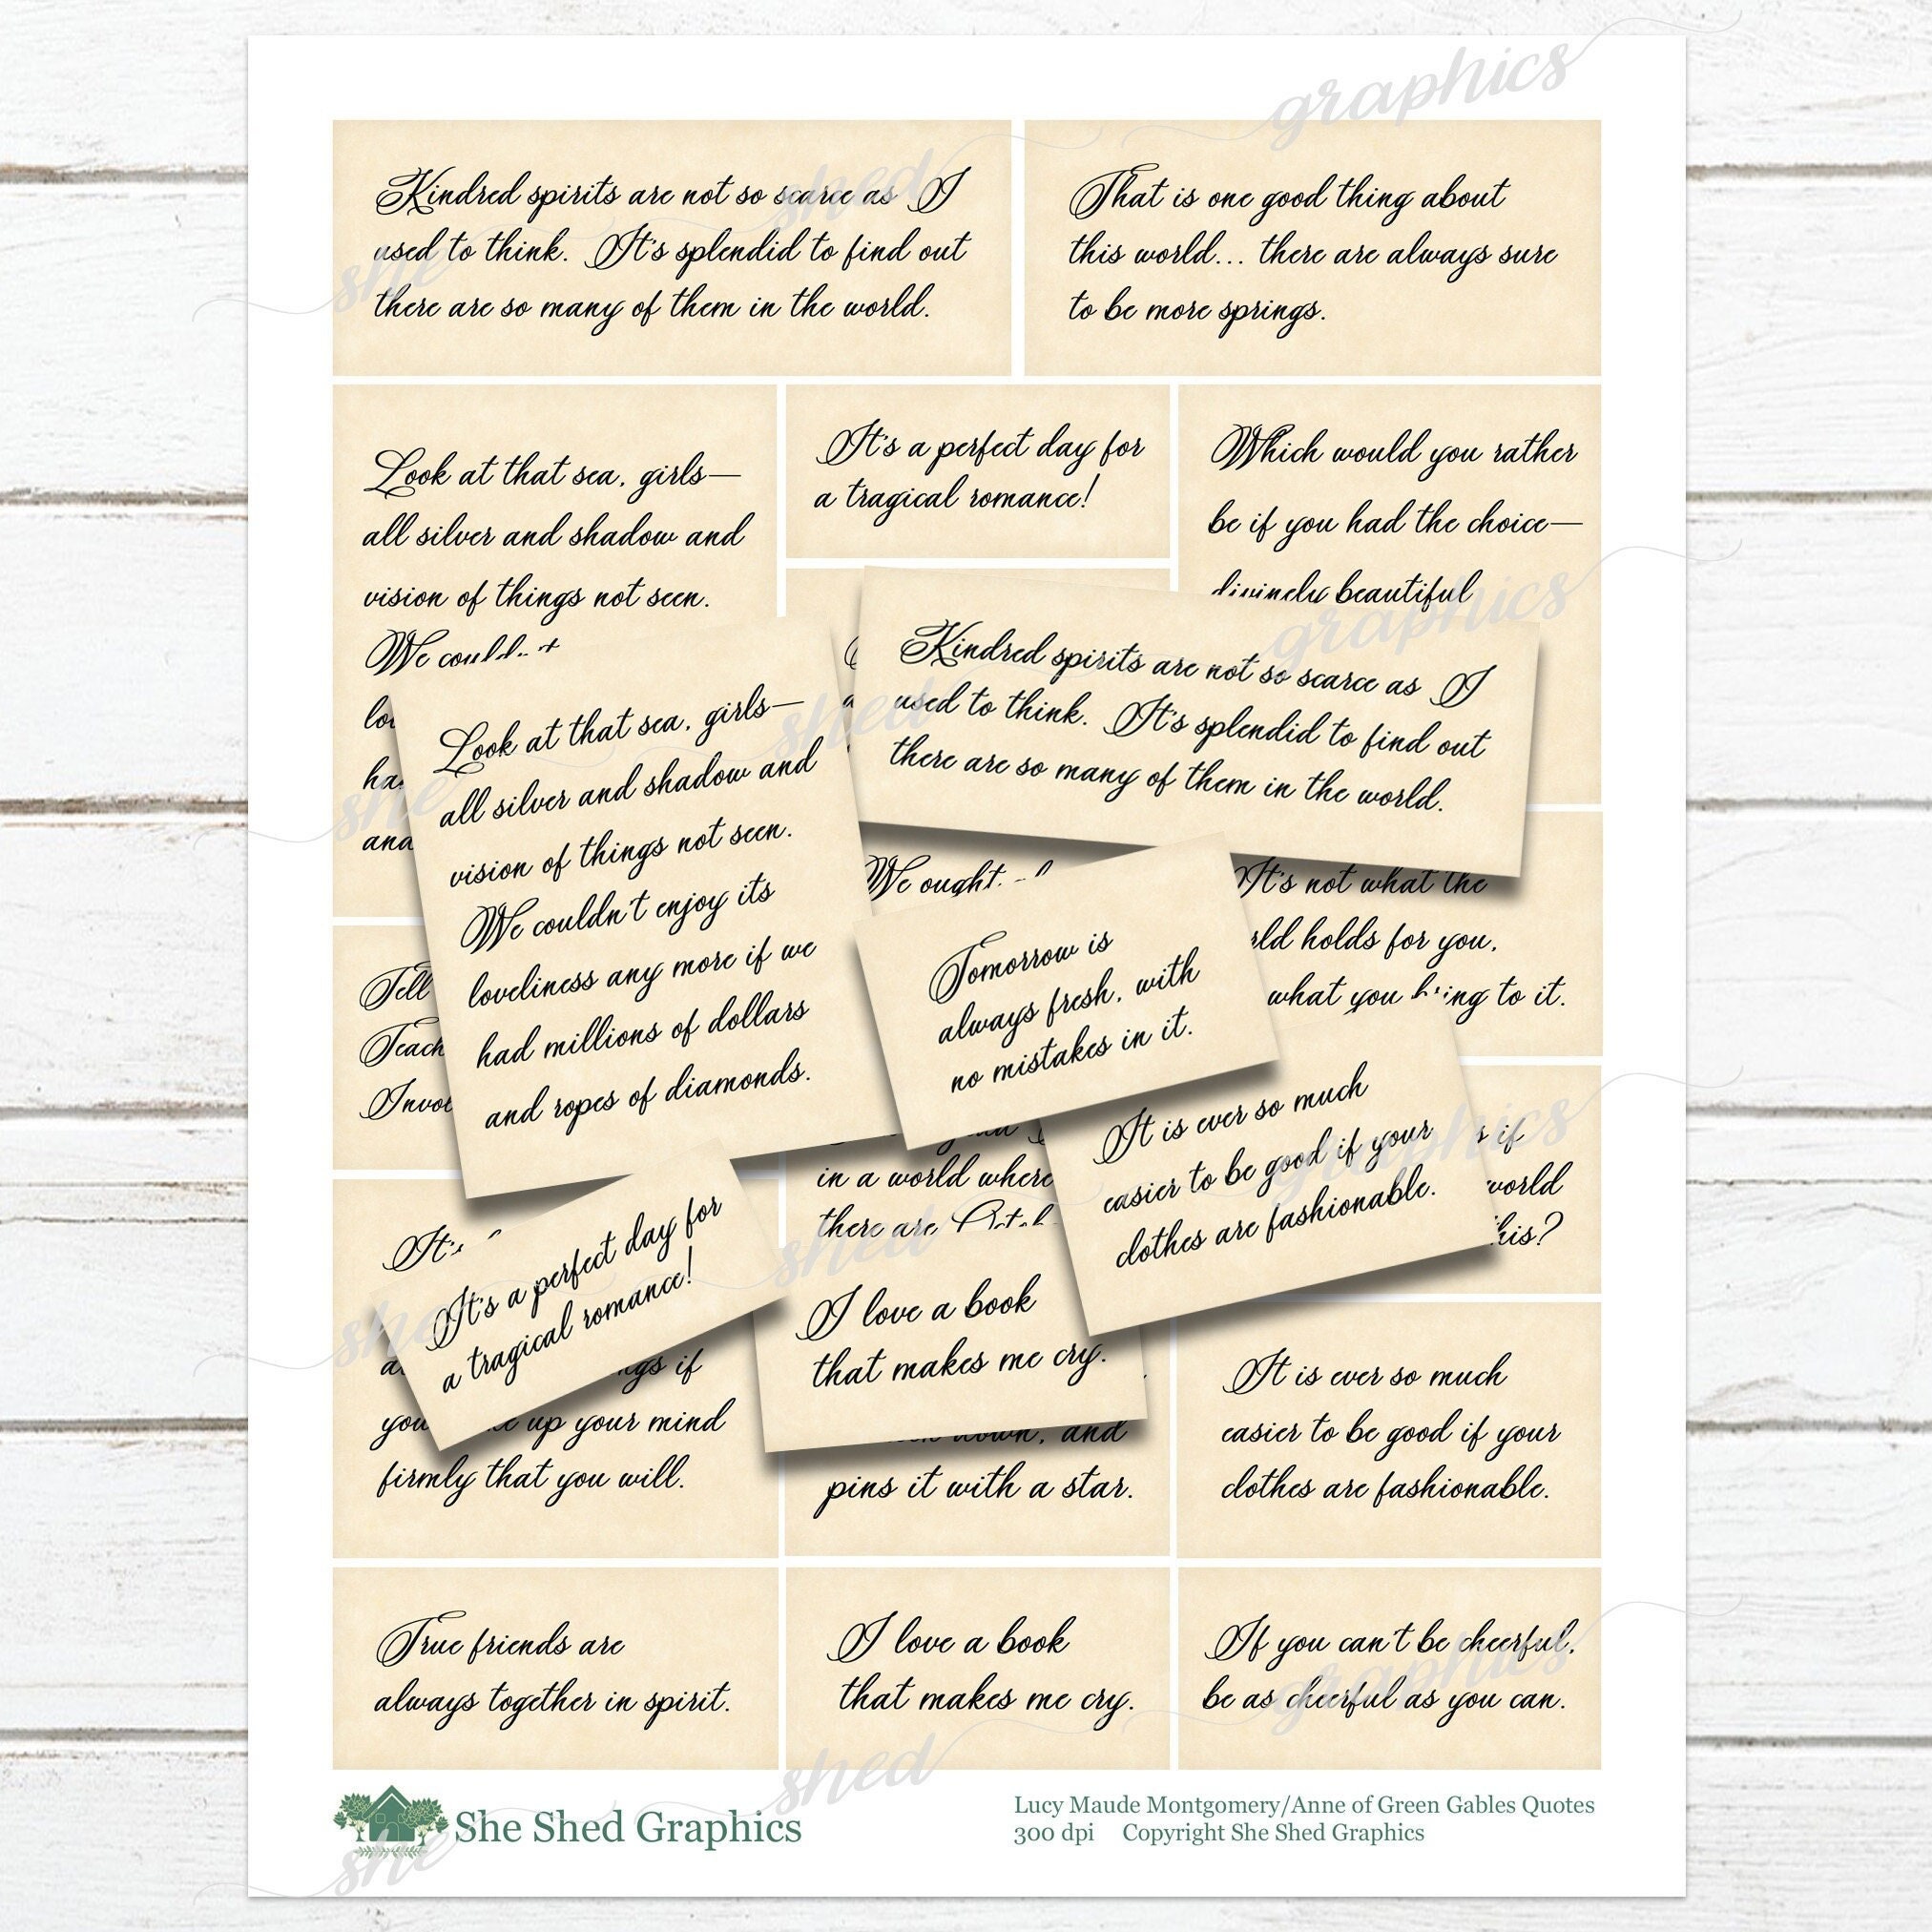 Kindred spirits are not so scarce as I
used to think. It's splendid to find out
there are so many of them in the world.
That is one good thing about
this world... there are always sure
to be more springs.
Look at that sea, girls—
all silver and shadow and
vision of things not seen.
We
It's a perfect day for
a tragical romance!
Which would you rather
be if you had the choice—
divinely beautiful
Look at that sea, girls—
all silver and shadow and
vision of things not seen.
We couldn't enjoy its
loveliness any more if we
had millions of dollars
and ropes of diamonds.
Kindred spirits are not so scarce as I
used to think. It's splendid to find out
there are so many of them in the world.
We ought
Tomorrow is
always fresh, with
no mistakes in it.
It's not what the
holds for you,
what you bring to it.
Tell
in a world where
there are
It is ever so much
easier to be good if your
clothes are fashionable.
if
world
this?
It's a perfect day for
a tragical romance!
if
up your mind
firmly that you will.
I love a book
that makes me cry.
down, and
pins it with a star.
It is ever so much
easier to be good if your
clothes are fashionable.
True friends are
always together in spirit.
I love a book
that makes me cry.
If you can't be cheerful,
be as cheerful as you can.
She Shed Graphics
Lucy Maude Montgomery/Anne of Green Gables Quotes
300 dpi Copyright She Shed Graphics
she shed graphics
she shed graphics
she shed graphics
she shed graphics